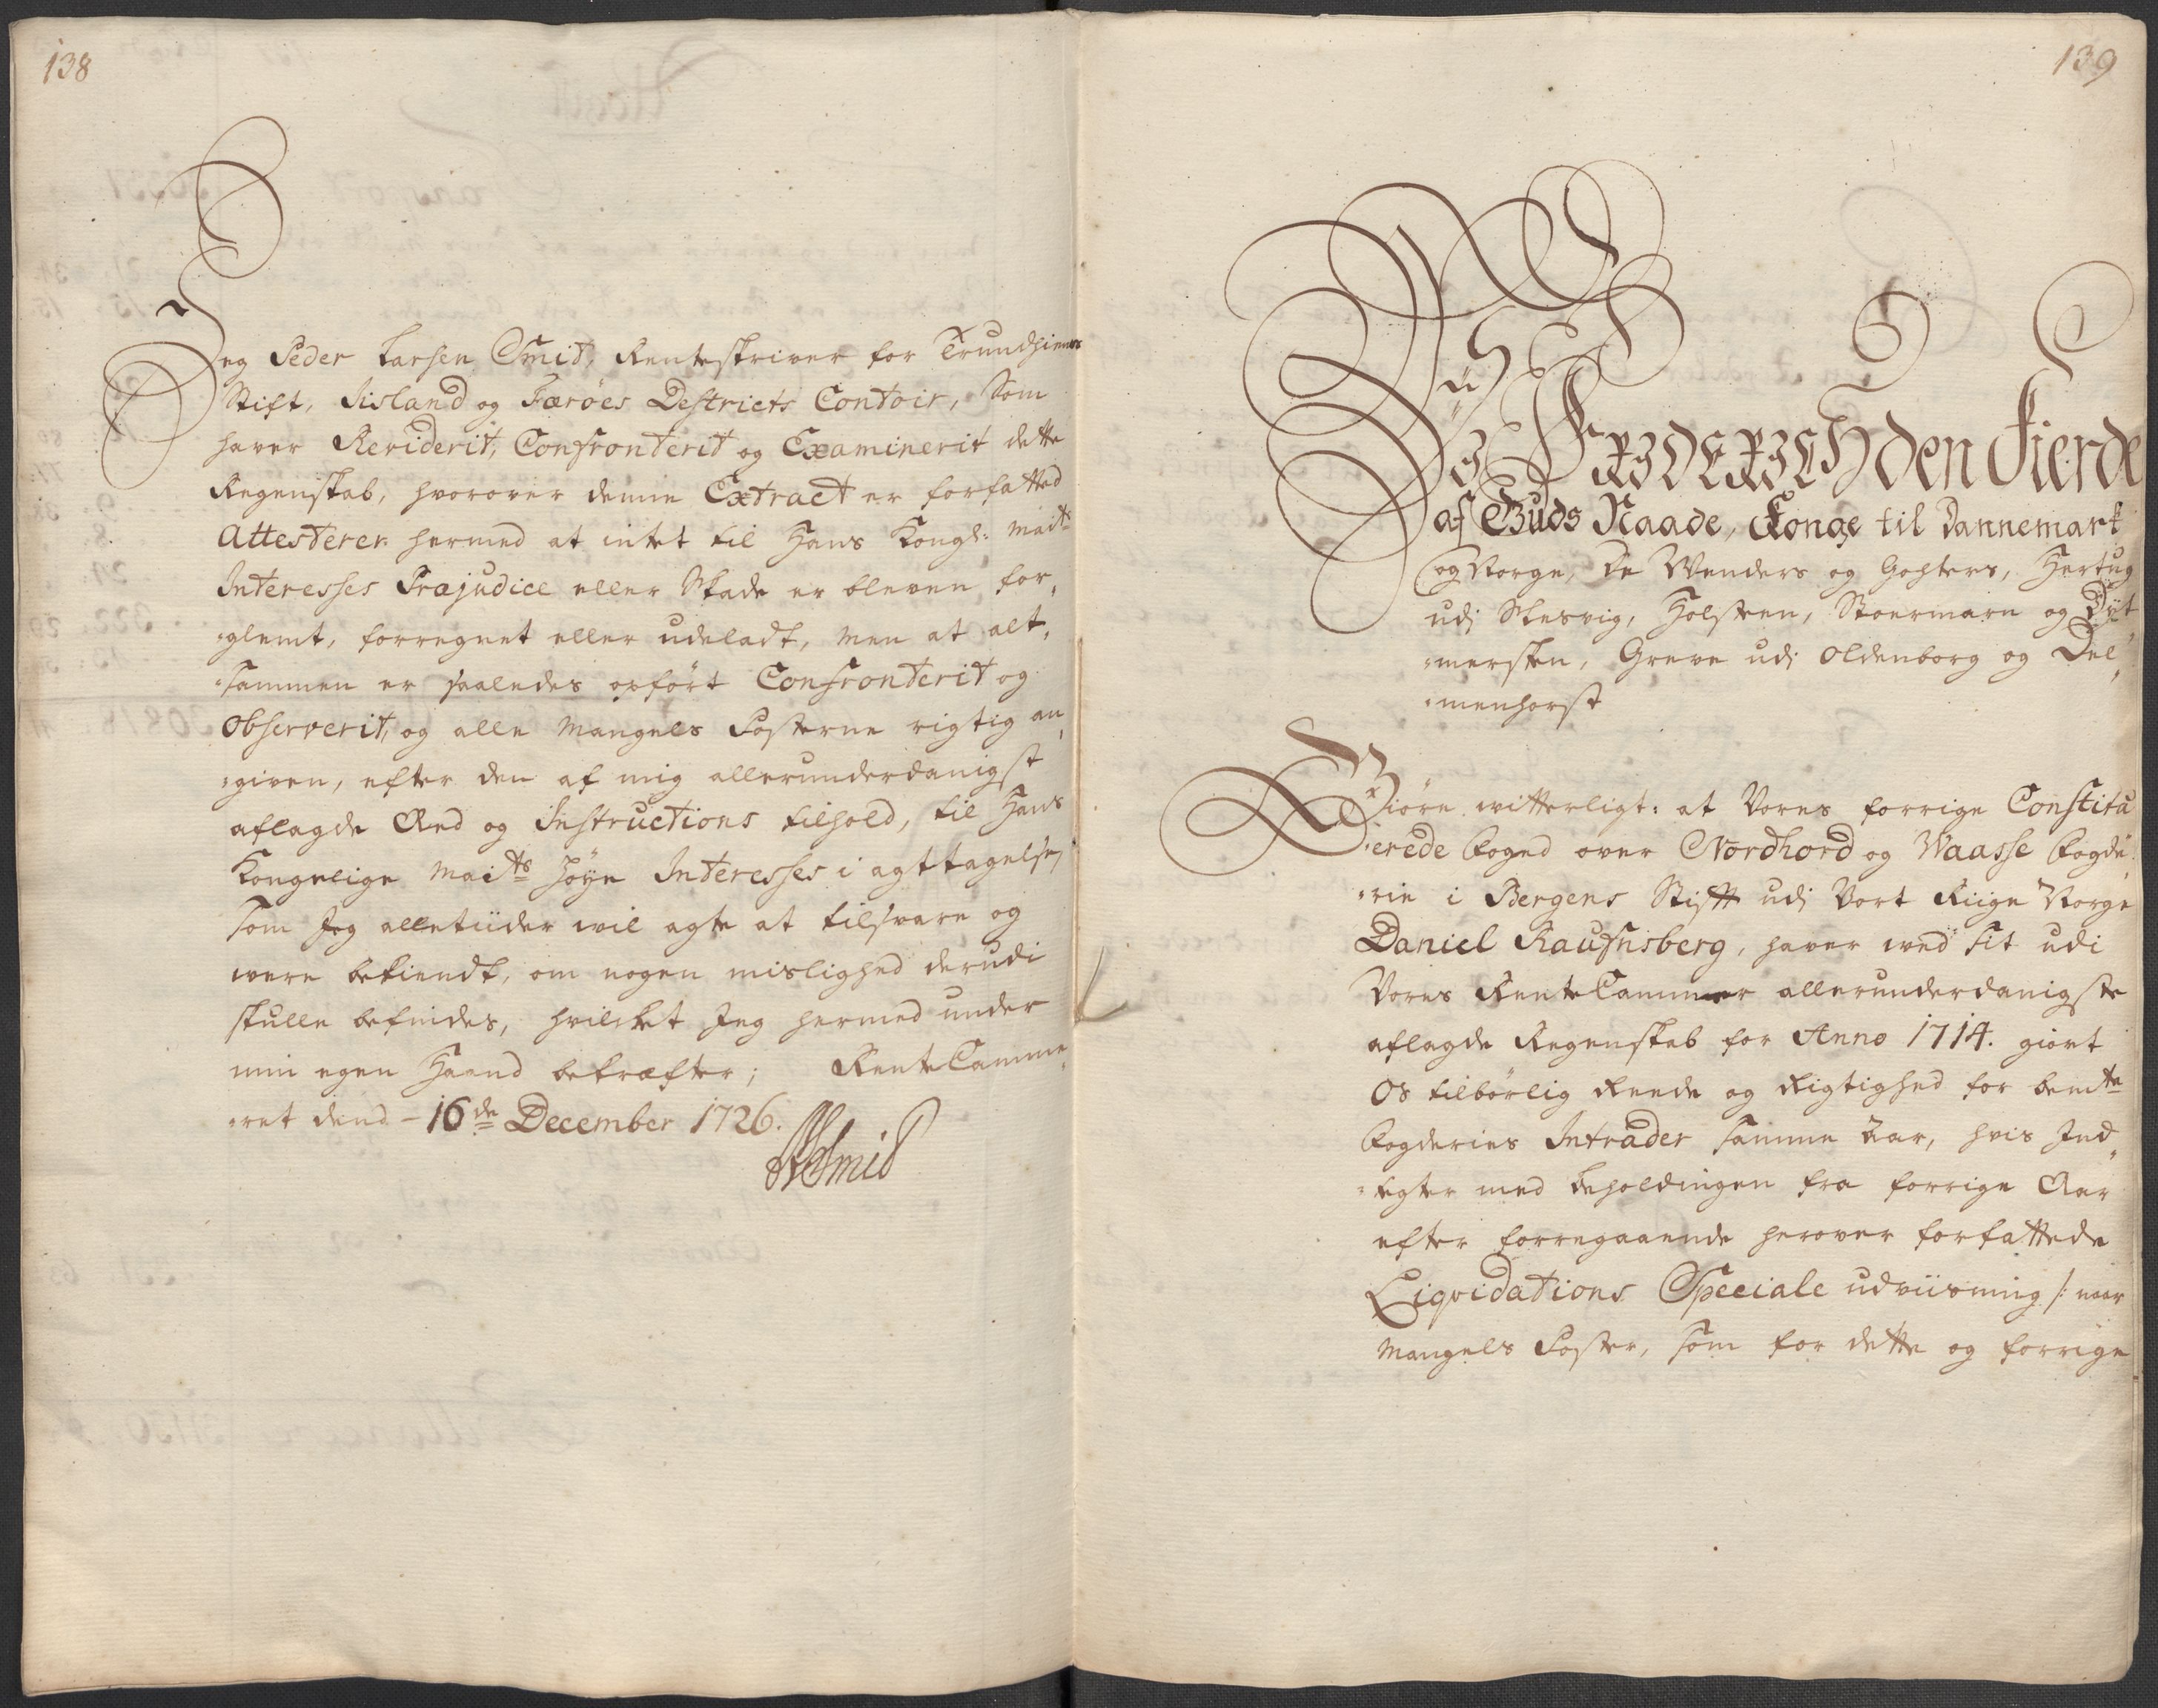 138
Jeg Peder Larsen Smit, Renteskriver for Trundhiems
Stift, Iisland og Færöes Destricts Contoir, Som
haver Reviderit, Confronterit og Examinerit dette
Regenskab, hvorover denne Extract er forfatted
Attesterer hermed at intet til Hans Kongl: Maits
Interesses Præjudice eller Skade er bleven for,
,glemt, forregnet eller udeladt, men at alt,
,sammen er saaledes opfört Confronterit og
Observerit, og alle Mangels Posterne rigtig an,
,given, efter den af mig allerunderdanigst
aflagde Eed og Instructions tilhold, til Hans
Kongelige Maits Höye Interesses i agttagelse,
som Jeg alletiider vil agte at tilsvare og
være bekiendt, om nogen mislighed derudi
skulle befindes, hvilcket Jeg hermed under
min egen Haand bekræfter; RenteCamme,
,ret dend - 16de December 1726.
PLSmid
139
Wii
FRIDERICH den Fierde
af Guds Naade, Konge til Dannemark
og Norge, De Wenders og Gothers, Hertug
udj Slesvig, Holsteen, Stoermarn og Dyt
,mersken, Greve udj Oldenborg og Del,
,menhorst
Giöre witterligt: at Vores forrige Constitu
,erede Foged over Nordhord og Waasse Fogde,
,rie i Bergens Stift udj Vort Riige Norge
Daniel Raufnsberg, haver wed sit udi
Vores RenteCammer allerunderdanigste
aflagde Regenskab for Anno 1714. giort
Os tilbörlig Reede og Rigtighed for bemte
Fogderies Intrader samme Aar, hvis Ind,
,tegter med beholdingen fra forrige Aar
efter forregaaende herover forfattede
Liqvidations Speciale udviisning /: naar
Mangels Poster, som for dette og forrige